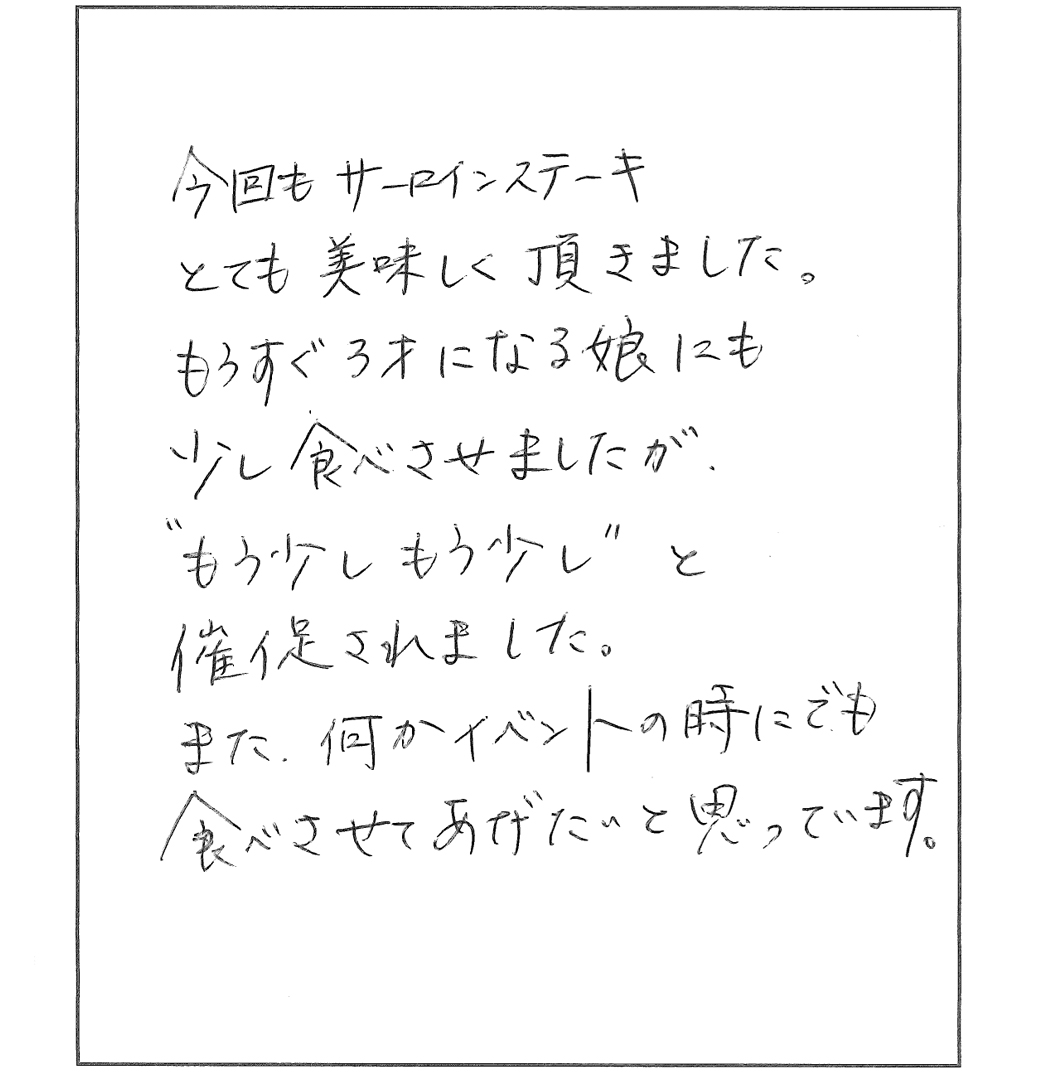 今回もサーロインステーキ
とても美味しく頂きました。
もうすぐ3才になる娘にも
少し食べさせましたが、
“もう少しもう少し”と
催促されました。
また、何かイベントの時にでも
食べさせてあげたいと思っています。